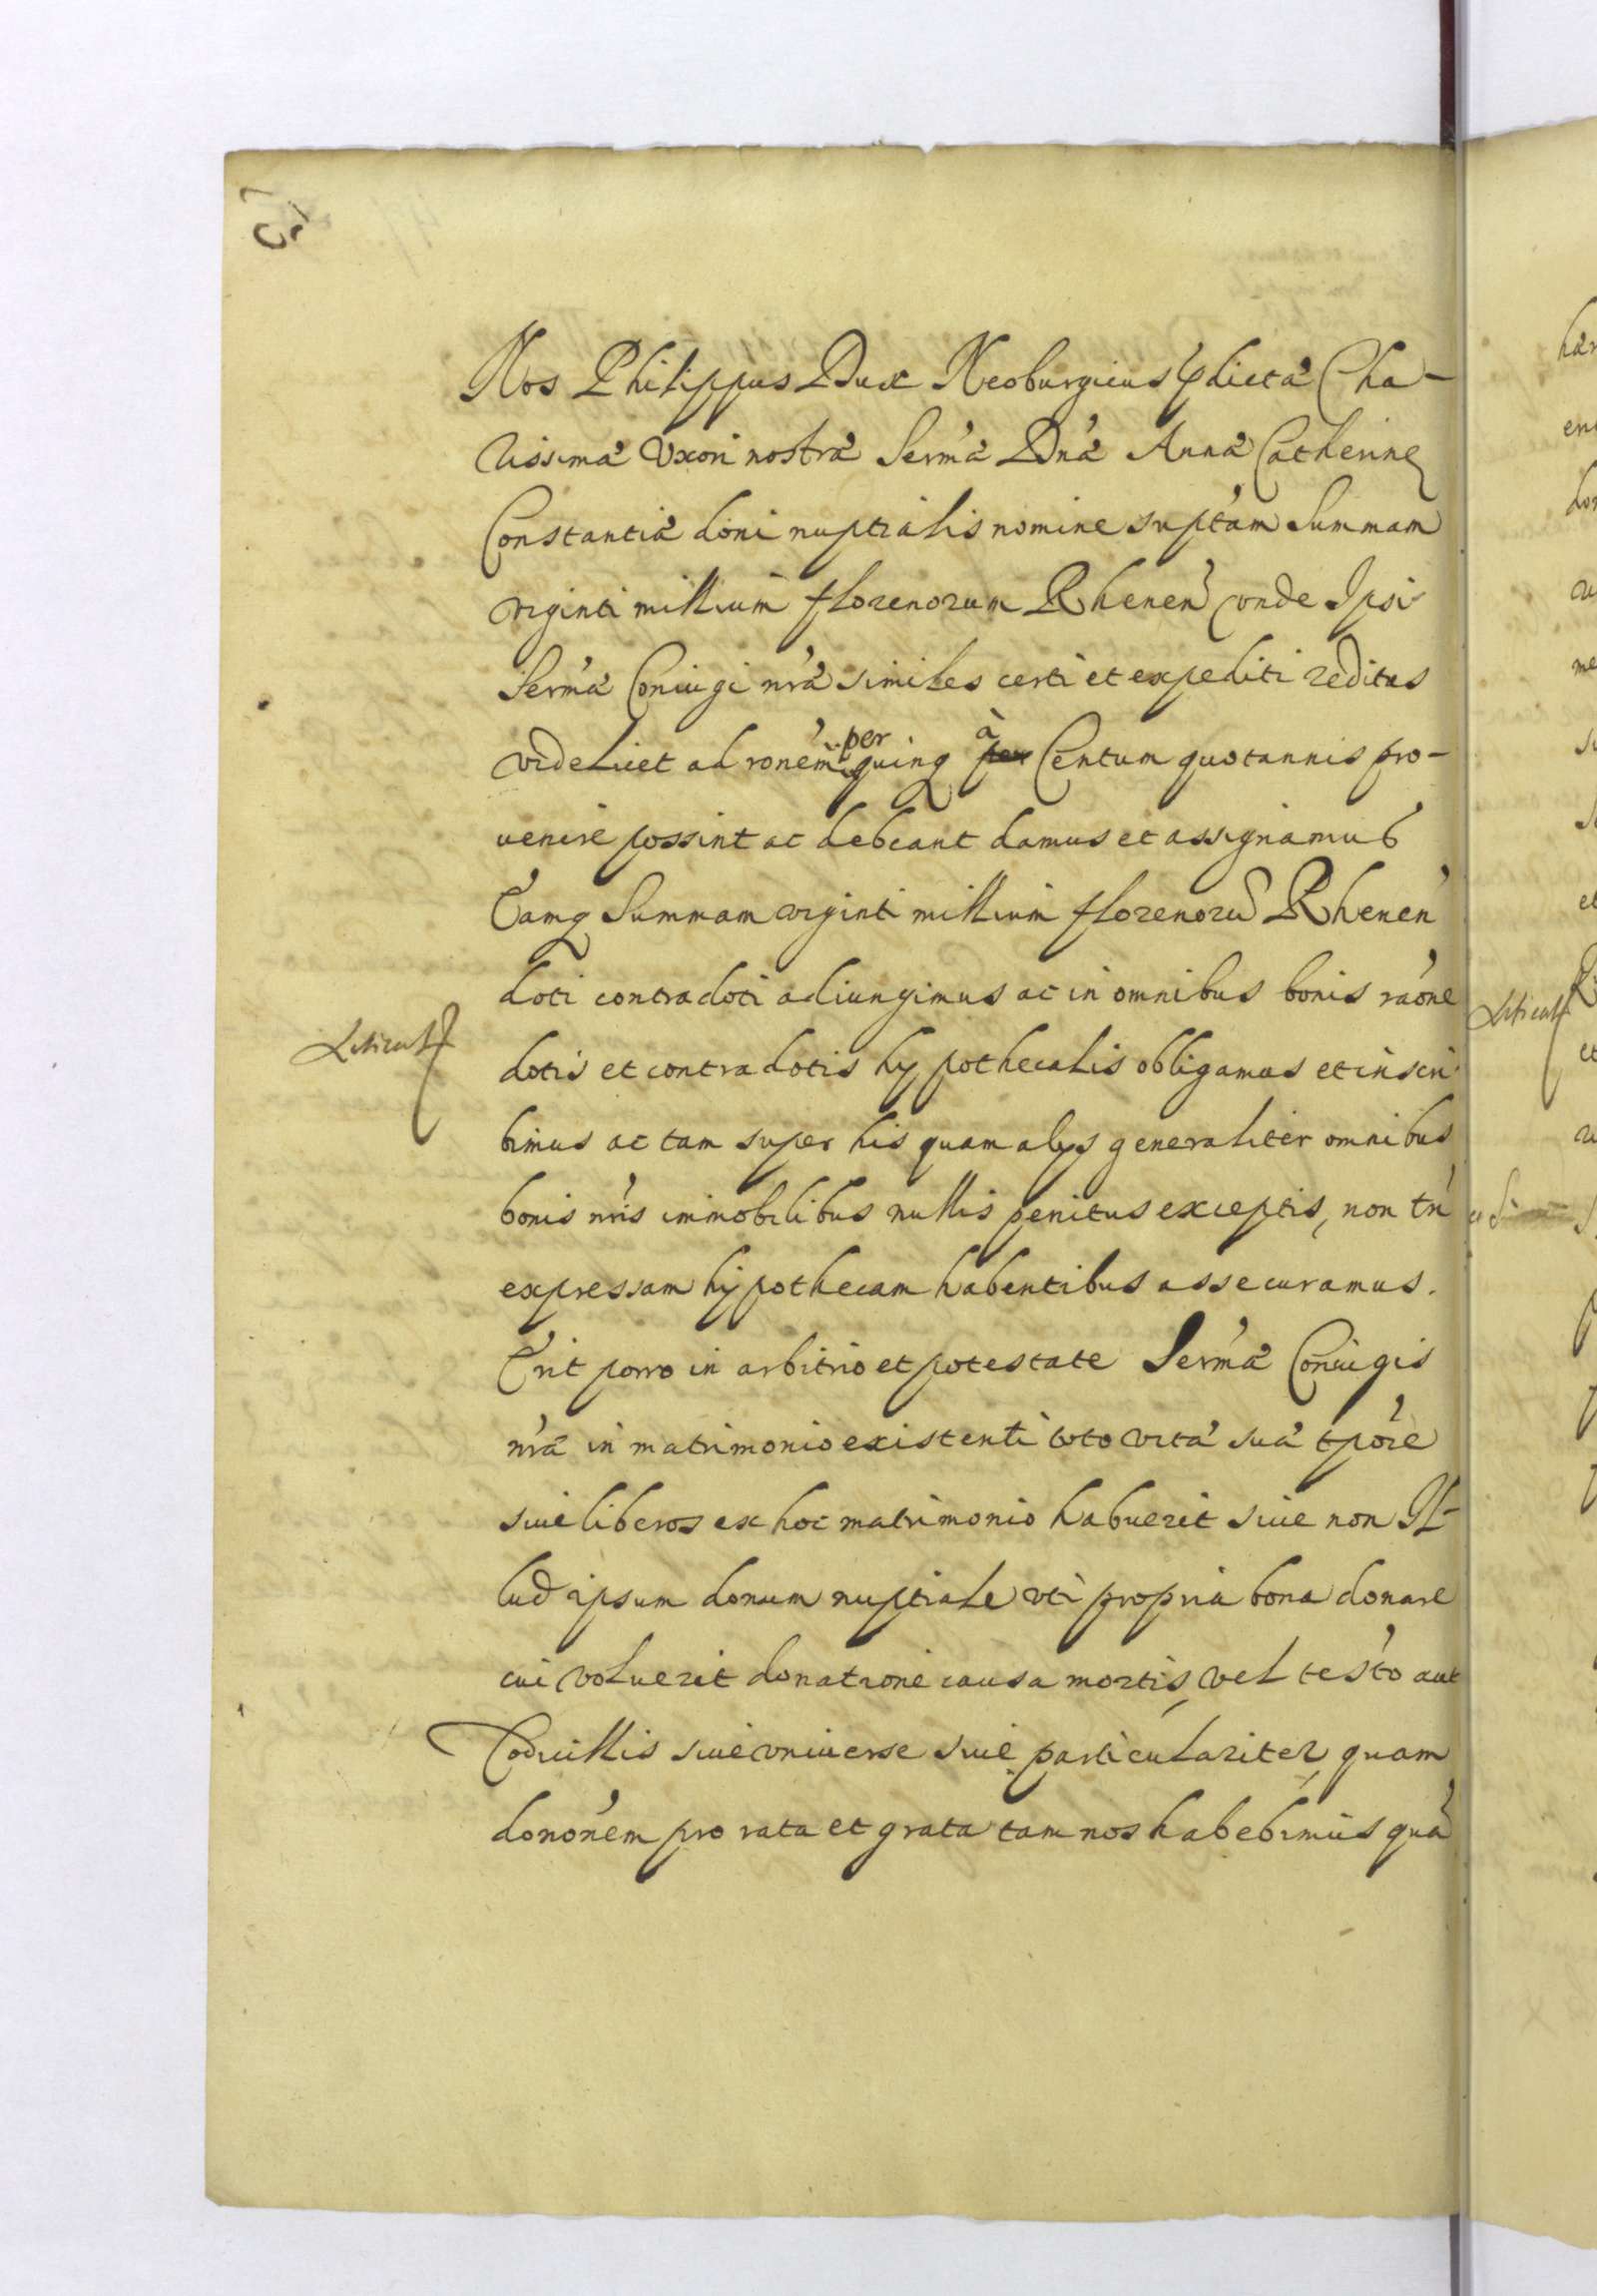 Nos Philippus Dux Neoburgicus pdictà Cha-
rissimà Uxori nostrà Sermà Dnà Annà Catherinę
Constantià doni nuptialis nomine suptam Summam
viginti millium florenorum Rhenen unde Ipsi
Sermà Coniugi nrà similes certi et expediti reditus
videlicet ad ronem per quinq à per Centum quotannis pro-
uenire possint ac debeant damus et assignamus
Eamq Summam viginti millium florenorū Rhenen
doti contradoti adiungimus ac in omnibus bonis raone
dotis et contradotis hypothecalis obligamus et inscri-
bimus ac tam super his quam alijs generaliter omnibus
bonis nris immobilibus nullis penitus exceptis, non tn
expressam hypothecam habentibus assecuramus.
Erit porro in arbitrio et potestate Sermà Coniugis
nrà in matrimonio existenti toto vità suà tpore
siue liberos ex hoc matrimonio habuerit siue non Il-
lud ipsum donum nuptiale uti propria bona donare
cui voluerit donatione causa mortis, vel testo aut
Codicillis siue vniuerse siue particulariter, quam
dononem pro rata et grata tam nos habebimus quà